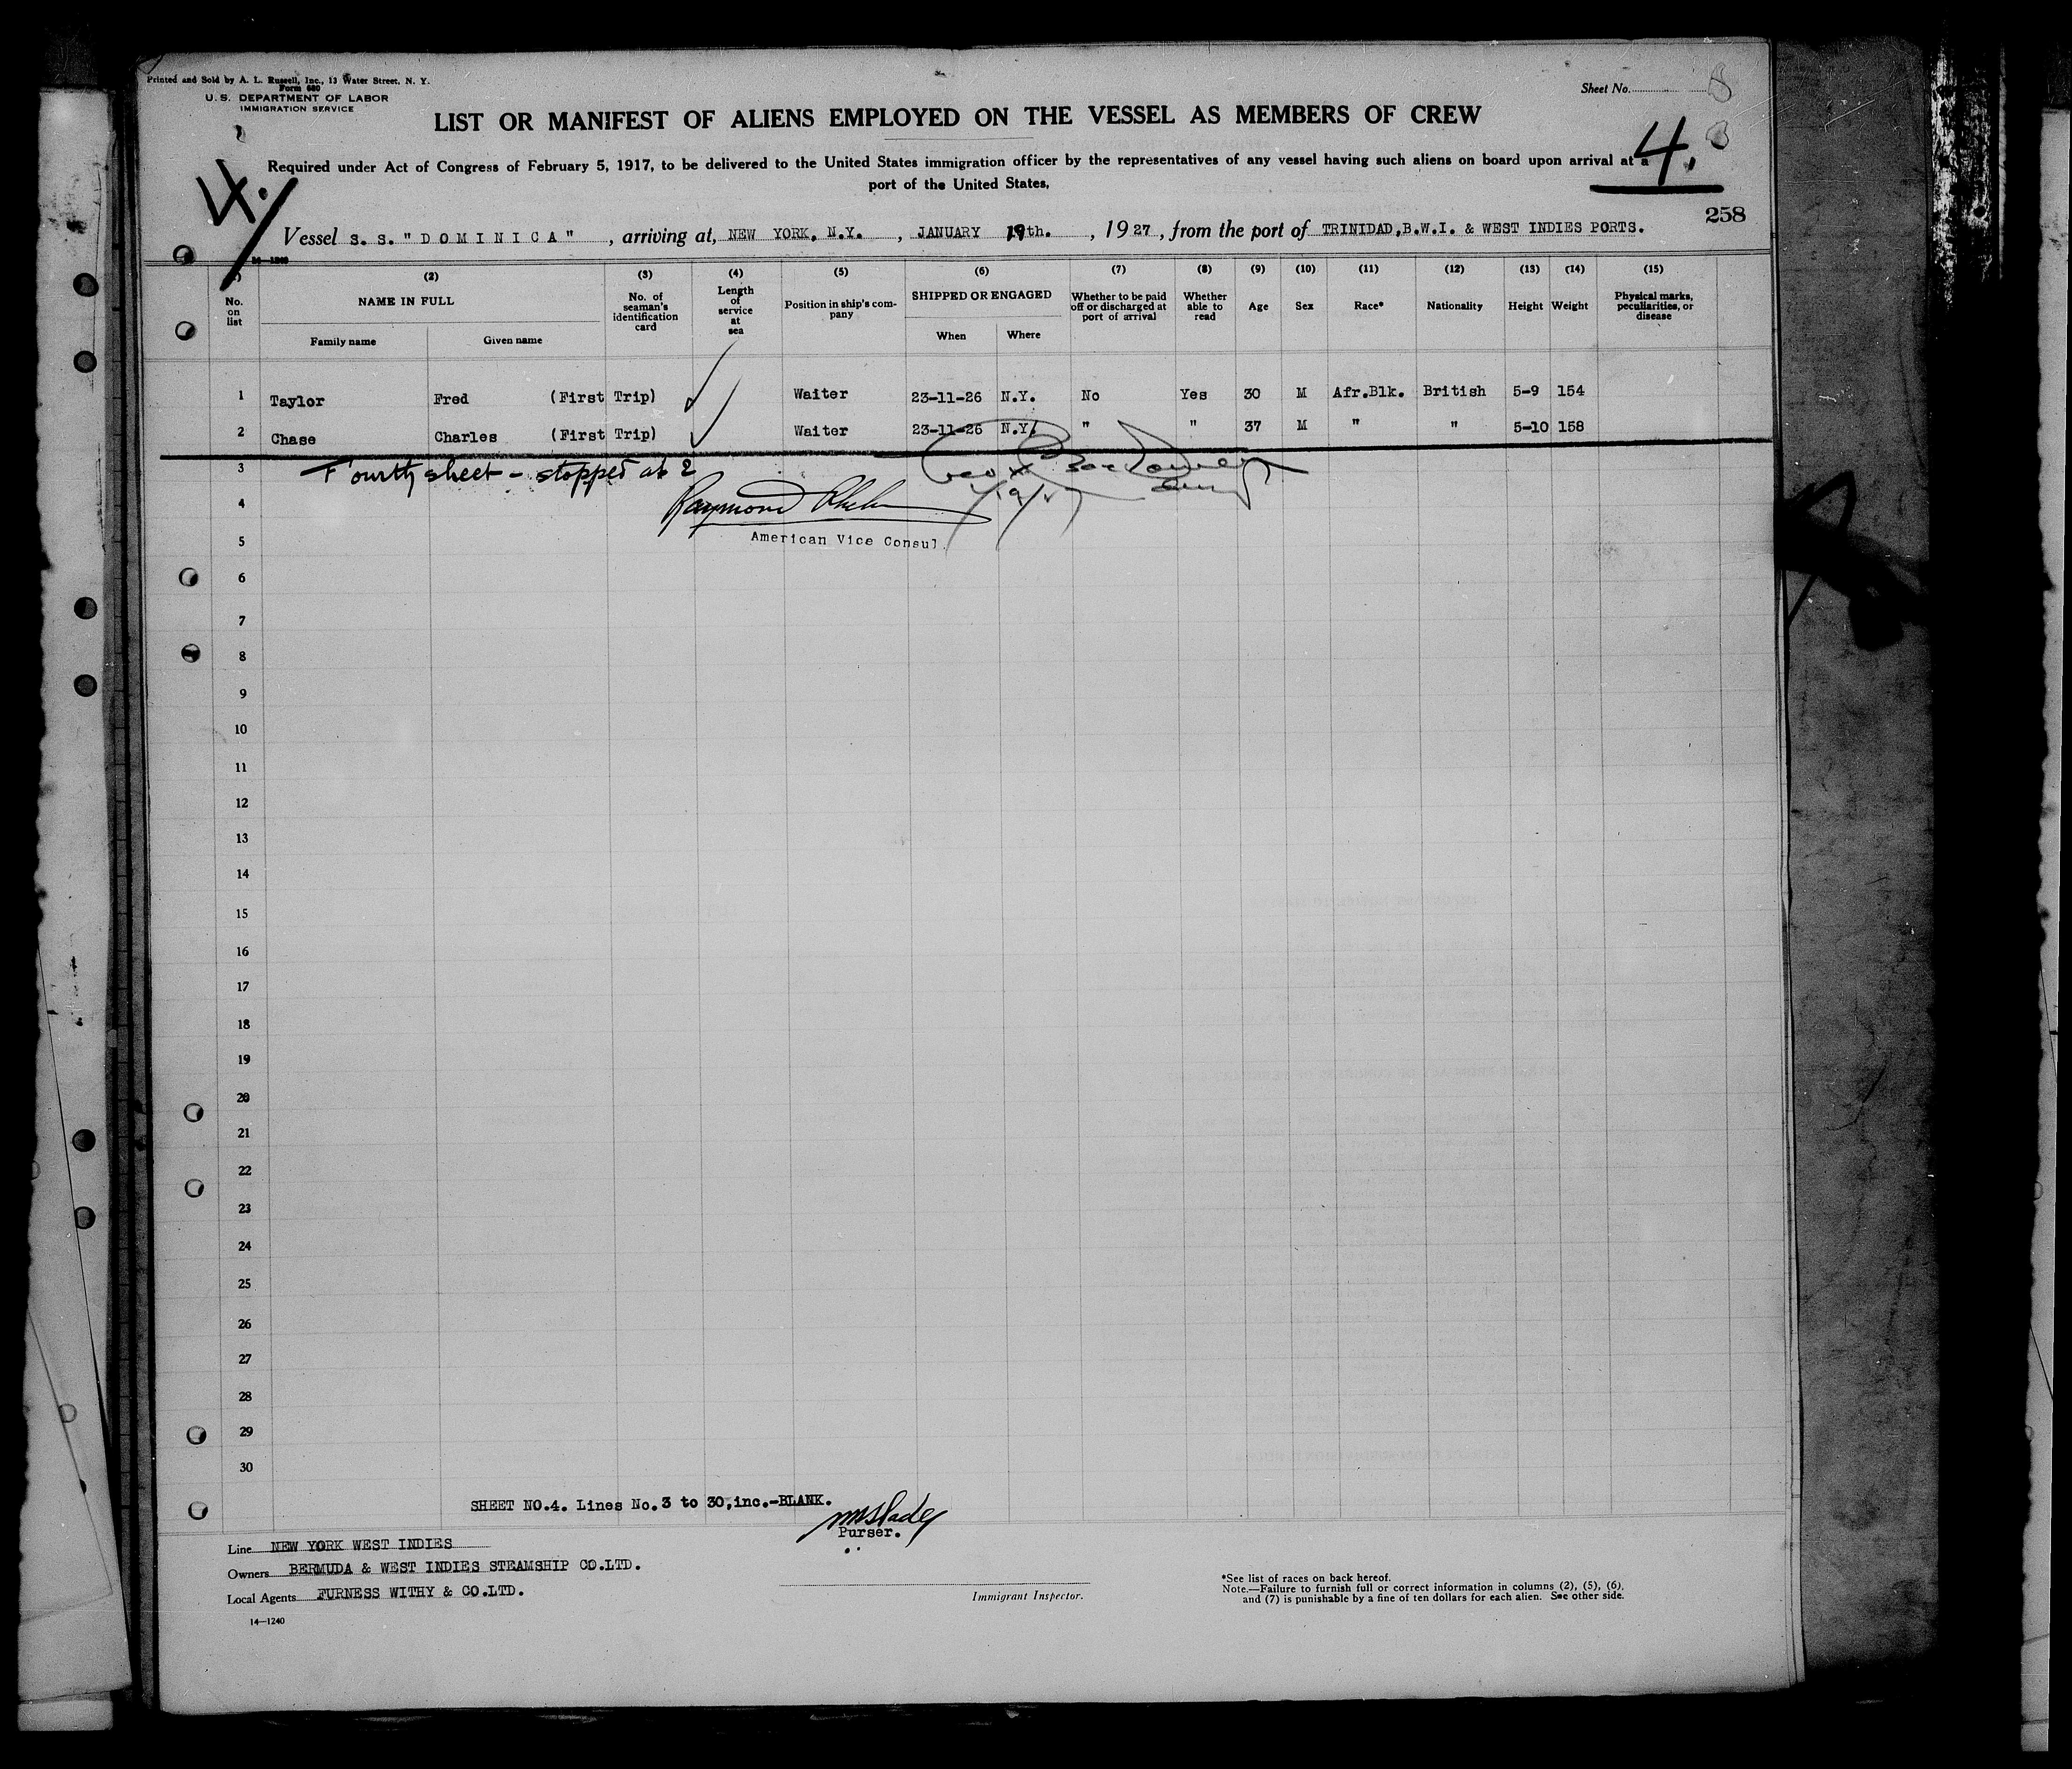 Printed and Sold by A. L. Russell, Inc., 13 Water Street, N. Y.
Form 680
U. S. DEPARTMENT OF LABOR
IMMIGRATION SERVICE
Sheet No.
LIST OR MANIFEST OF ALIENS EMPLOYED ON THE VESSEL AS MEMBERS OF CREW
4.
4.
Required under Act of Congress of February 5, 1917, to be delivered to the United States immigration officer by the representatives of any vessel having such aliens on board upon arrival at a
port of the United States,
258
Vessel S. S. "DOMINICA", arriving at, NEW YORK, N.Y., JANUARY 19th., 1927, from the port of TRINIDAD, B.W.I. & WEST INDIES PORTS.
14—1240
(2) (3) (4) (5) (6) (7) (8) (9) (10) (11) (12) (13) (14) (15)
No. on list NAME IN FULL No. of seaman's identification card Length of service at sea Position in ship's company SHIPPED OR ENGAGED Whether to be paid off or discharged at port of arrival Whether able to read Age Sex Race* Nationality Height Weight Physical marks, peculiarities, or disease
Family name Given name When Where
1 Taylor Fred (First Trip) Waiter 23-11-26 N.Y. No Yes 30 M Afr.Blk. British 5-9 154
2 Chase Charles (First Trip) Waiter 23-11-26 N.Y. " " 37 M " " 5-10 158
3 Fourth sheet - stopped at 2
4 Raymond
5 American Vice Consul.
6
7
8
9
10
11
12
13
14
15
16
17
18
19
20
21
22
23
24
25
26
27
28
29
30
SHEET NO.4. Lines No.3 to 30,inc.-BLANK.
Purser.
Line NEW YORK WEST INDIES
Owners BERMUDA & WEST INDIES STEAMSHIP CO.LTD.
Local Agents FURNESS WITHY & CO.LTD.
14—1240
Immigrant Inspector.
*See list of races on back hereof.
Note.—Failure to furnish full or correct information in columns (2), (5), (6),
and (7) is punishable by a fine of ten dollars for each alien. See other side.